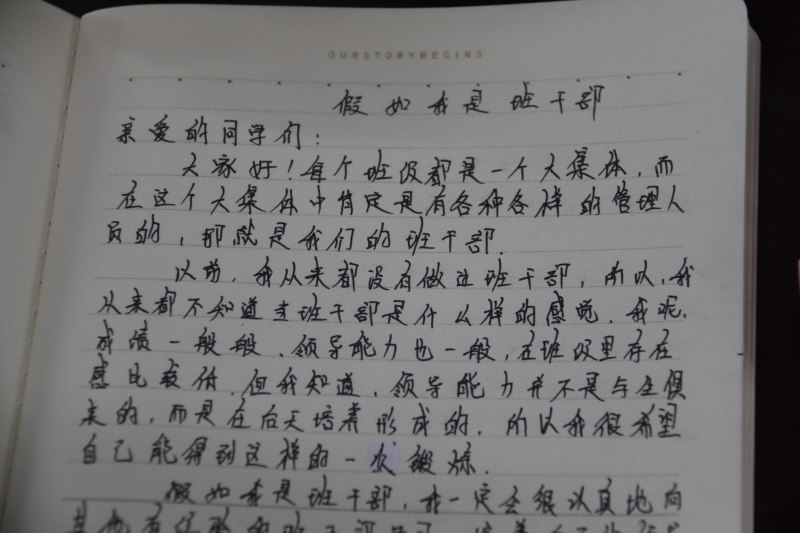 OURSTORYBEGINS
假如我是班干部
亲爱的同学们：
大家好！每个班级都是一个大集体，而
在这个大集体中肯定是有各种各样的管理人
员的，那就是我们的班干部.
以前，我从来都没有做过班干部，所以，我
从来都不知道当班干部是什么样的感觉.我呢，
成绩一般般、领导能力也一般，在班级里存在
感比较低.但我知道，领导能力并不是与生俱
来的，而是在后天培养形成的.所以我很希望
自己能得到这样的一次锻炼.
假如我是班干部，我一定会很认真地向